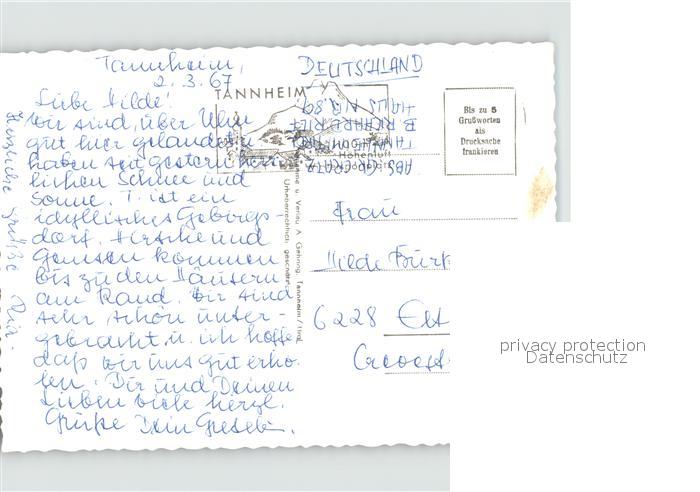 Tannheim,
2.3.67
Liebe Hilde!
Wir sind, über Ulm
gut hier gelandet u.
haben seit gestern herr-
lichen Schnee und
Sonne. T. ist ein
idyllisches Gebirgs-
dorf. Hirsche und
Gemsen kommen
bis zu den Häusern
am Rand. Wir sind
sehr schön unter-
gebracht u. ich hoffe
daß wir uns gut erho-
len. Dir und Deinen
Lieben viele herzl.
Grüße Dein
Herzliche Grüße
DEUTSCHLAND
TANNHEIM
Höhenluft
Bis zu 5
Grußworten
als
Drucksache
frankieren
u. Verlag A. Gehring, Tannheim/Tirol
Urheberrechtlich geschützt
Frau
Hilde
6228
privacy protection
Datenschutz